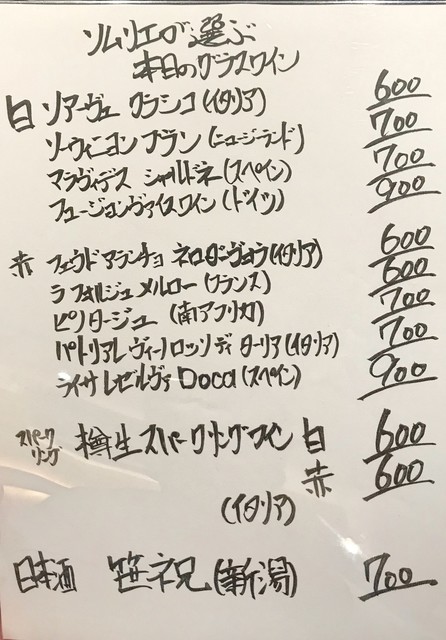 ソムリエが選ぶ
本日のグラスワイン
白 ソアーヴェ クラシコ(イタリア) 600
ソーヴィニヨンブラン(ニュージーランド) 700
マラヴィデス シャルドネ(スペイン) 700
フュージョンヴァイスワイン(ドイツ) 900
赤 フェウドマランチョ ネロダーヴォラ(イタリア) 600
ラフォルジュメルロー(フランス) 600
ピノタージュ(南アフリカ) 700
パトリアレヴィーノロッソディターリア(イタリア) 700
ライサレゼルヴァDoca(スペイン) 900
スパークリング 樽生スパークリングワイン 白 600
赤 600
(イタリア)
日本酒 笹祝(新潟) 700